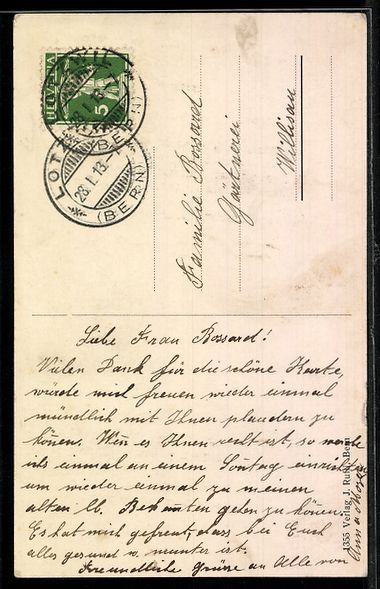 HELVETIA
5
LOTZWIL
28.I.13.-7
(BERN)
Familie Bossard
Gärtnerei
Willisau
Liebe Frau Bossard!
Vielen Dank für die schöne Karte,
würde mich freuen wieder einmal
mündlich mit Ihnen plaudern zu
können. Wen̄ es Ihnen recht ist, so werde
ich einmal an einem Son̄tag einrücken
um wieder einmal zu meinen
alten lb. Bekan̄ten gehen zu können.
Es hat mich gefreut, dass bei Euch
alles gesund u. munter ist.
Freundliche Grüsse an Alle von
Anna
1355 Verlag J. Rubi, Bern